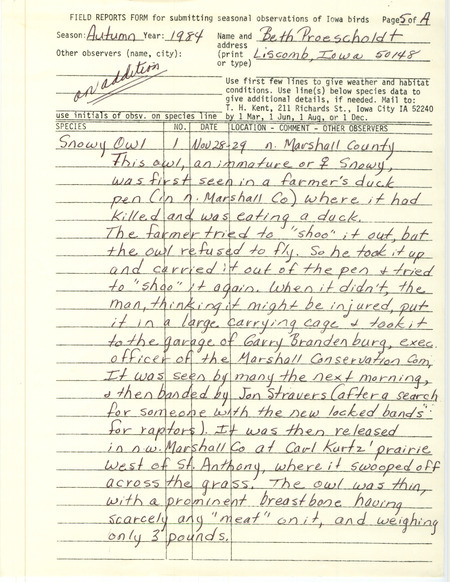 FIELD REPORTS FORM for submitting seasonal observations of Iowa birds Page 5 of A
Season: Autumn Year: 1984 Name and Beth Proescholdt
address
Other observers (name, city): (print Liscomb, Iowa 50148
or type)
an addition
Use first few lines to give weather and habitat
conditions. Use line(s) below species data to
give additional details, if needed. Mail to:
T. H. Kent, 211 Richards St., Iowa City IA 52240
use initials of obsv. on species line by 1 Mar, 1 Jun, 1 Aug, or 1 Dec.
SPECIES NO. DATE LOCATION - COMMENT - OTHER OBSERVERS
Snowy Owl 1 Nov 28-29 n. Marshall County
This owl, an immature or ♀ Snowy,
was first seen in a farmer's duck
pen (in n. Marshall Co) where it had
killed and was eating a duck.
The farmer tried to "shoo" it out, but
the owl refused to fly. So he took it up
and carried it out of the pen & tried
to "shoo" it again. When it didn't, the
man, thinking it might be injured, put
it in a large carrying cage & took it
to the garage of Garry Brandenburg, exec.
officer of the Marshall Conservation Com.
It was seen by many the next morning,
& then banded by Jon Stravers (after a search
for someone with the new locked bands
for raptors). It was then released
in n.w. Marshall Co at Carl Kurtz' prairie
west of St. Anthony, where it swooped off
across the grass. The owl was thin,
with a prominent breastbone having
scarcely any "meat" on it, and weighing
only 3 pounds.